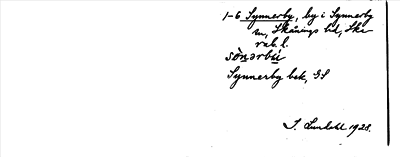 1-6 Synnerby, by i Synnerby
sn, Skånings hd, Ska
rab. l.
sönərbü
Synnerby bek, GS
I. Lundahl 1928.